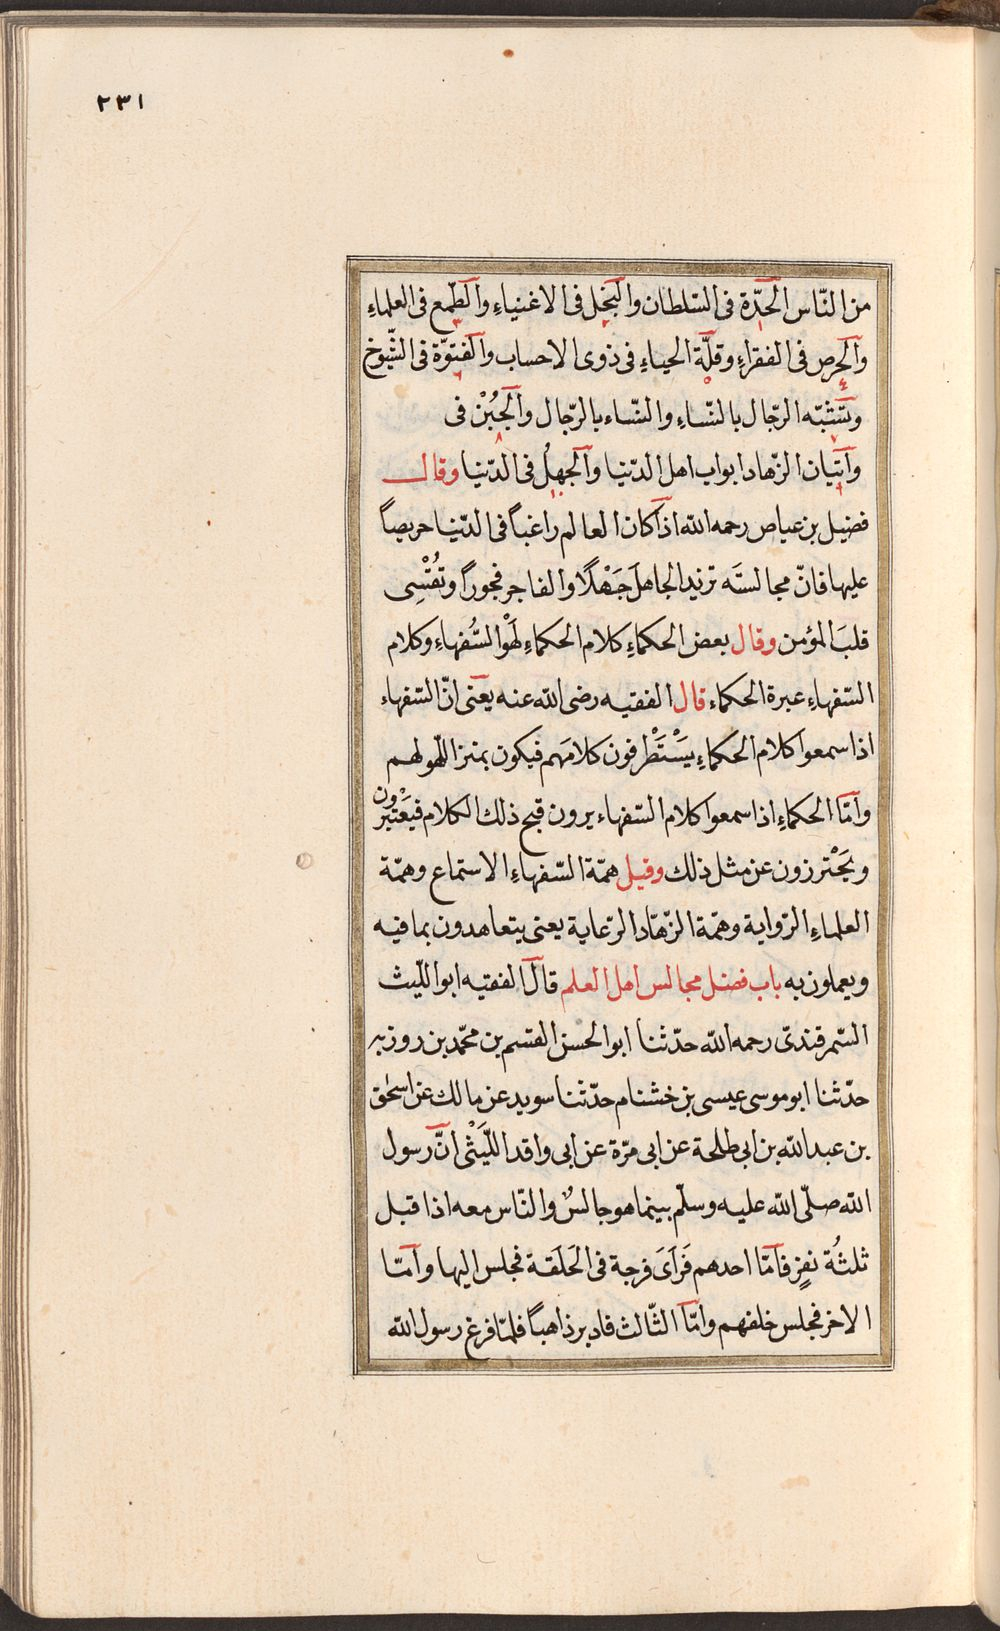 ٢٣١
من النّاس الحدّة فى السّلطان والبخل فى الاغنياءِ والطّمع فى العلماءِ
والحرص فى الفقراءِ وقلّة الحياءِ فى ذوى الاحساب والفتوّة فى الشّيوخ
وتشّبّه الرّجال بالنّساءِ والنّساء بالرّجال والجُبْن فى
واتيان الزّهاد ابواب اهل الدّنيا والجهلُ فى الدّنيا وقال
فضيل بن عياص رحمه اللّه اذا كان العالم راغباً فى الدّنيا حريصاً
عليها فانّ مجالستَه تزيد الجاهلَ جَهْلًا والفاجر فجوراً وتُقْسِى
قلبَ المؤمن وقال بعض الحكماءِ كلام الحكماءِ لَهْو السُّفهاءِ وكلام
السّفهاءِ عبرة الحكماء قال الفقيه رضى اللّه عنه يعنى انّ السّفهاء
اذا سمعوا كلام الحكماءِ يَسْتَطْرفون كلامَهم فيكون بمنزا للّهو لهم
وامّا الحكماءِ اذا سمعوا كلام السّفهاء يرون قبح ذلك الكلام فيَعْتبرون
ويَحْترزون عن مثل ذلك وقيل همّة السّفهاءِ الاستماع وهمّة
العلماءِ الرّواية وهمّة الزّهّاد الرّعاية يعنى يتعاهدون بما فيه
ويعملون به باب فضل مجالس اهل العلم قال الفقيه ابو اللّيث
السّمرقندىّ رحمه اللّه حدّثنا ابو الحسن القسم بن محمّد بن روزبه
حدّثنا ابو موسى عيسى بن خشنام حدّثنا سويد عن مالك عن اسحٰق
بن عبد اللّه بن ابى طلحة عن ابى مرّة عن ابى واقد اللَّيْثى انّ رسول
اللّه صلّى اللّه عليه وسلّم بينما هو جالسٌ والنّاس معه اذا قبل
ثلثُة نفرٍ فامّا احدهم فَرَاَىَ فرجة فى الحَلَقة فجلس اليها وامّا
الاخر فجلس خلفهم وامّا الثّالث فادبر ذاهباً فلمّا فرغ رسول اللّه